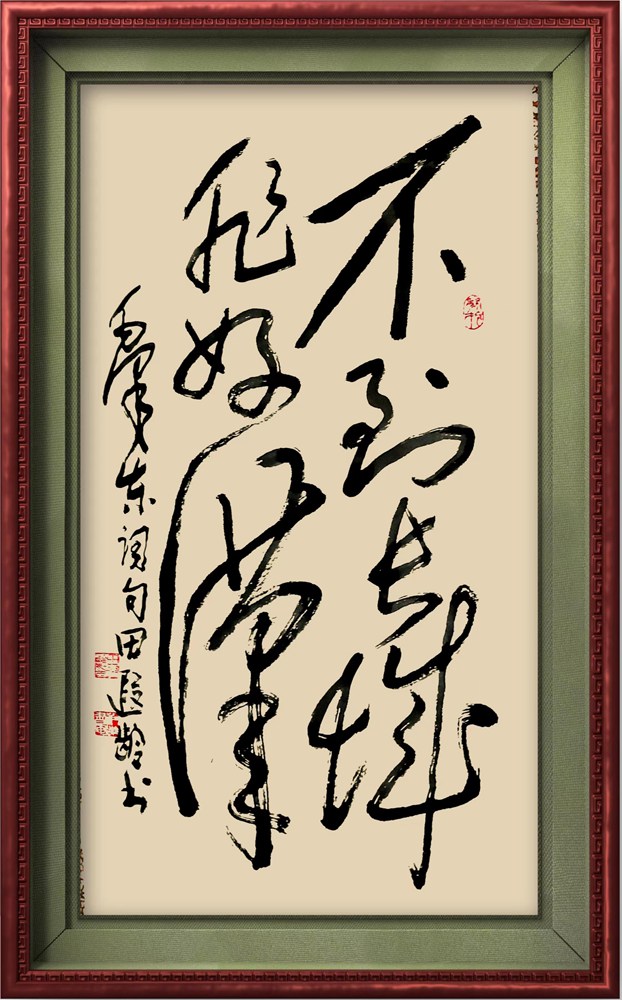 不到长城
非好汉
毛泽东词句田遐龄书